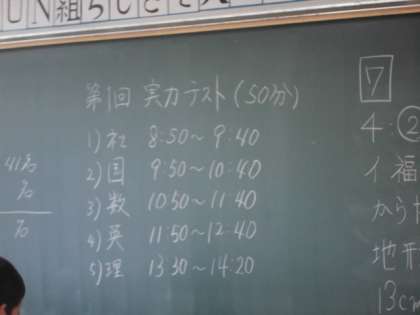 UN組らしさで大
第1回 実力テスト(50分)
1)社 8:50～9:40
2)国 9:50～10:40
3)数 10:50～11:40
4)英 11:50～12:40
5)理 13:30～14:20
41名
名
名
7
4:②
イ福
から
地形
13cm